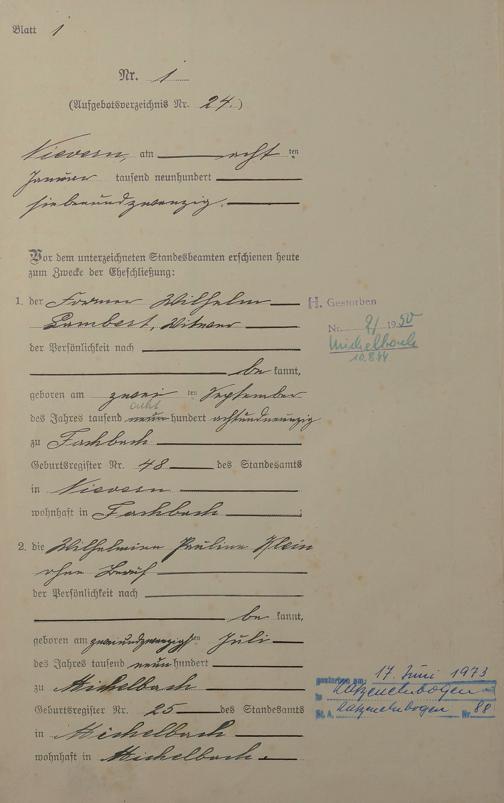 Blatt 1
Nr. 1
(Aufgebotsverzeichnis Nr. 24.)
Nievern, am acht ten
Januar tausend neunhundert
siebenundzwanzig.
Vor dem unterzeichneten Standesbeamten erschienen heute
zum Zwecke der Eheschließung:
1. der Former Wilhelm
Lambert, Witwer
der Persönlichkeit nach
be kannt,
geboren am zwei ten September
acht
des Jahres tausend neun hundert achtundneunzig
zu Fachbach
Geburtsregister Nr. 48 des Standesamts
in Nievern
wohnhaft in Fachbach ;
H. Gestorben
Nr. 2/1950
Michelbach
2. die Wilhelmina Paulina Klein
ohne Beruf
der Persönlichkeit nach
be kannt,
geboren am zweiundzwanzigsten Juli
des Jahres tausend neun hundert
zu Michelbach
Geburtsregister Nr. 25 des Standesamts
in Michelbach
wohnhaft in Michelbach.
gestorben am: 17. Juni 1973
in Katzenelnbogen
St. A. Katzenelnbogen Nr. 88